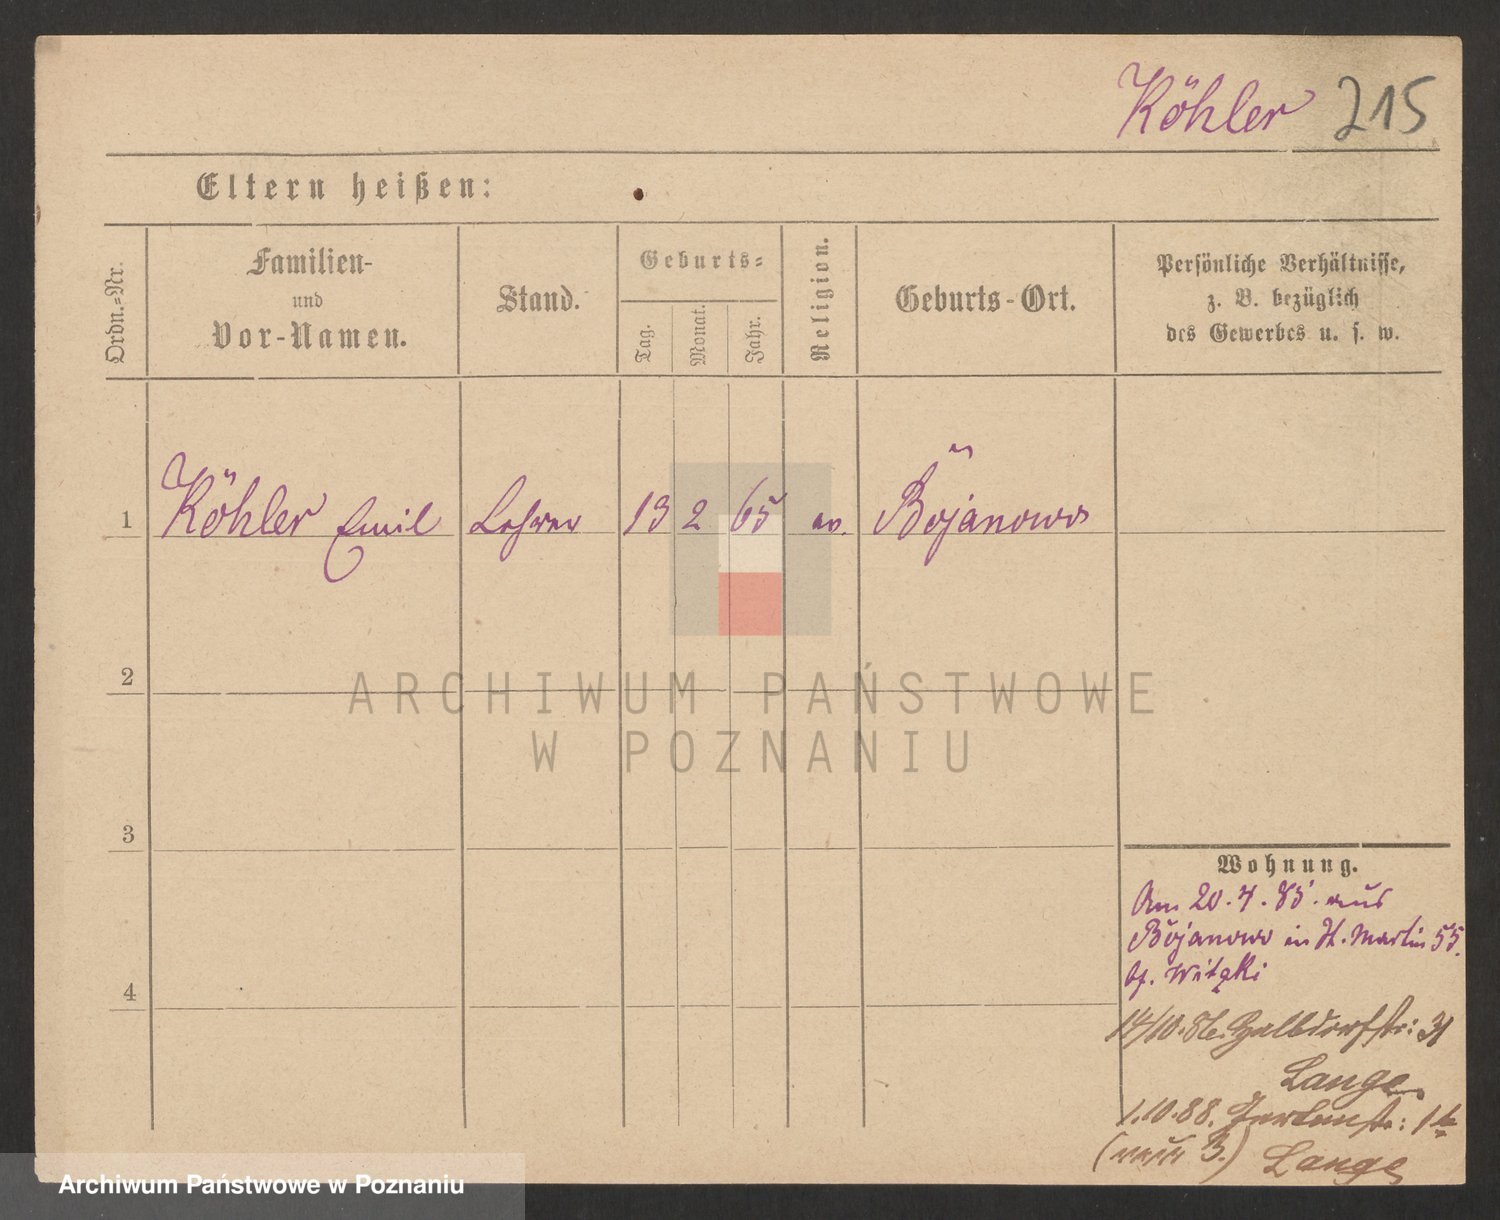 Köhler 215
Eltern heißen:
Ordn.=Nr.
Familien-
und
Vor-Namen.
Stand.
Geburts=
Tag.
Monat.
Jahr.
Religion.
Geburts-Ort.
Persönliche Verhältnisse,
z. B. bezüglich
des Gewerbes u. s. w.
1 Köhler Emil Lehrer 13 2 65 ev. Bojanowo
2
ARCHIWUM PAŃSTWOWE
W POZNANIU
3
Wohnung.
Am 20.4.85. aus
Bojanowo in St. Martin 55.
bf. Witzki
4
14/10.86. Halbdorfstr: 31
Lange
1.10.88. str: 1
(neue B.) Lange
Archiwum Państwowe w Poznaniu